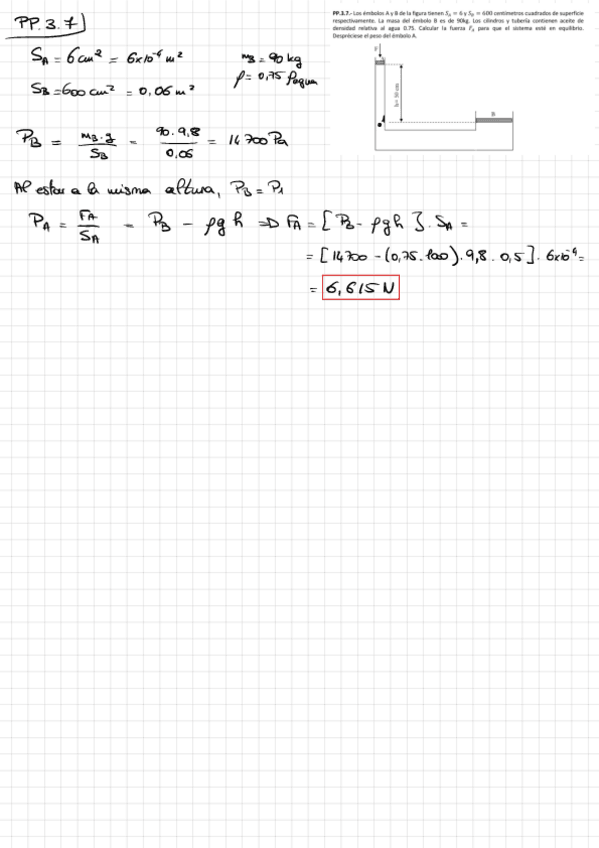 PP.3.7
PP.3.7.- Los émbolos A y B de la figura tienen S_A = 6 y S_B = 600 centímetros cuadrados de superficie
respectivamente. La masa del émbolo B es de 90kg. Los cilindros y tubería contienen aceite de
densidad relativa al agua 0.75. Calcular la fuerza F_A para que el sistema esté en equilibrio.
Despréciese el peso del émbolo A.
S_A = 6 cm² = 6x10⁻⁴ m²
m_B = 90 kg
ρ = 0,75 ρagua
S_B = 600 cm² = 0,06 m²
F
h = 50 cm
B
P_B = m_B·g / S_B = 90·9,8 / 0,06 = 14700 Pa
Al estar a la misma altura, P_B = P_1
P_A = F_A / S_A = P_B - ρgh ⇒ F_A = [P_B - ρgh]·S_A =
= [14700 - (0,75·1000)·9,8·0,5]·6x10⁻⁴ =
= 6,615 N